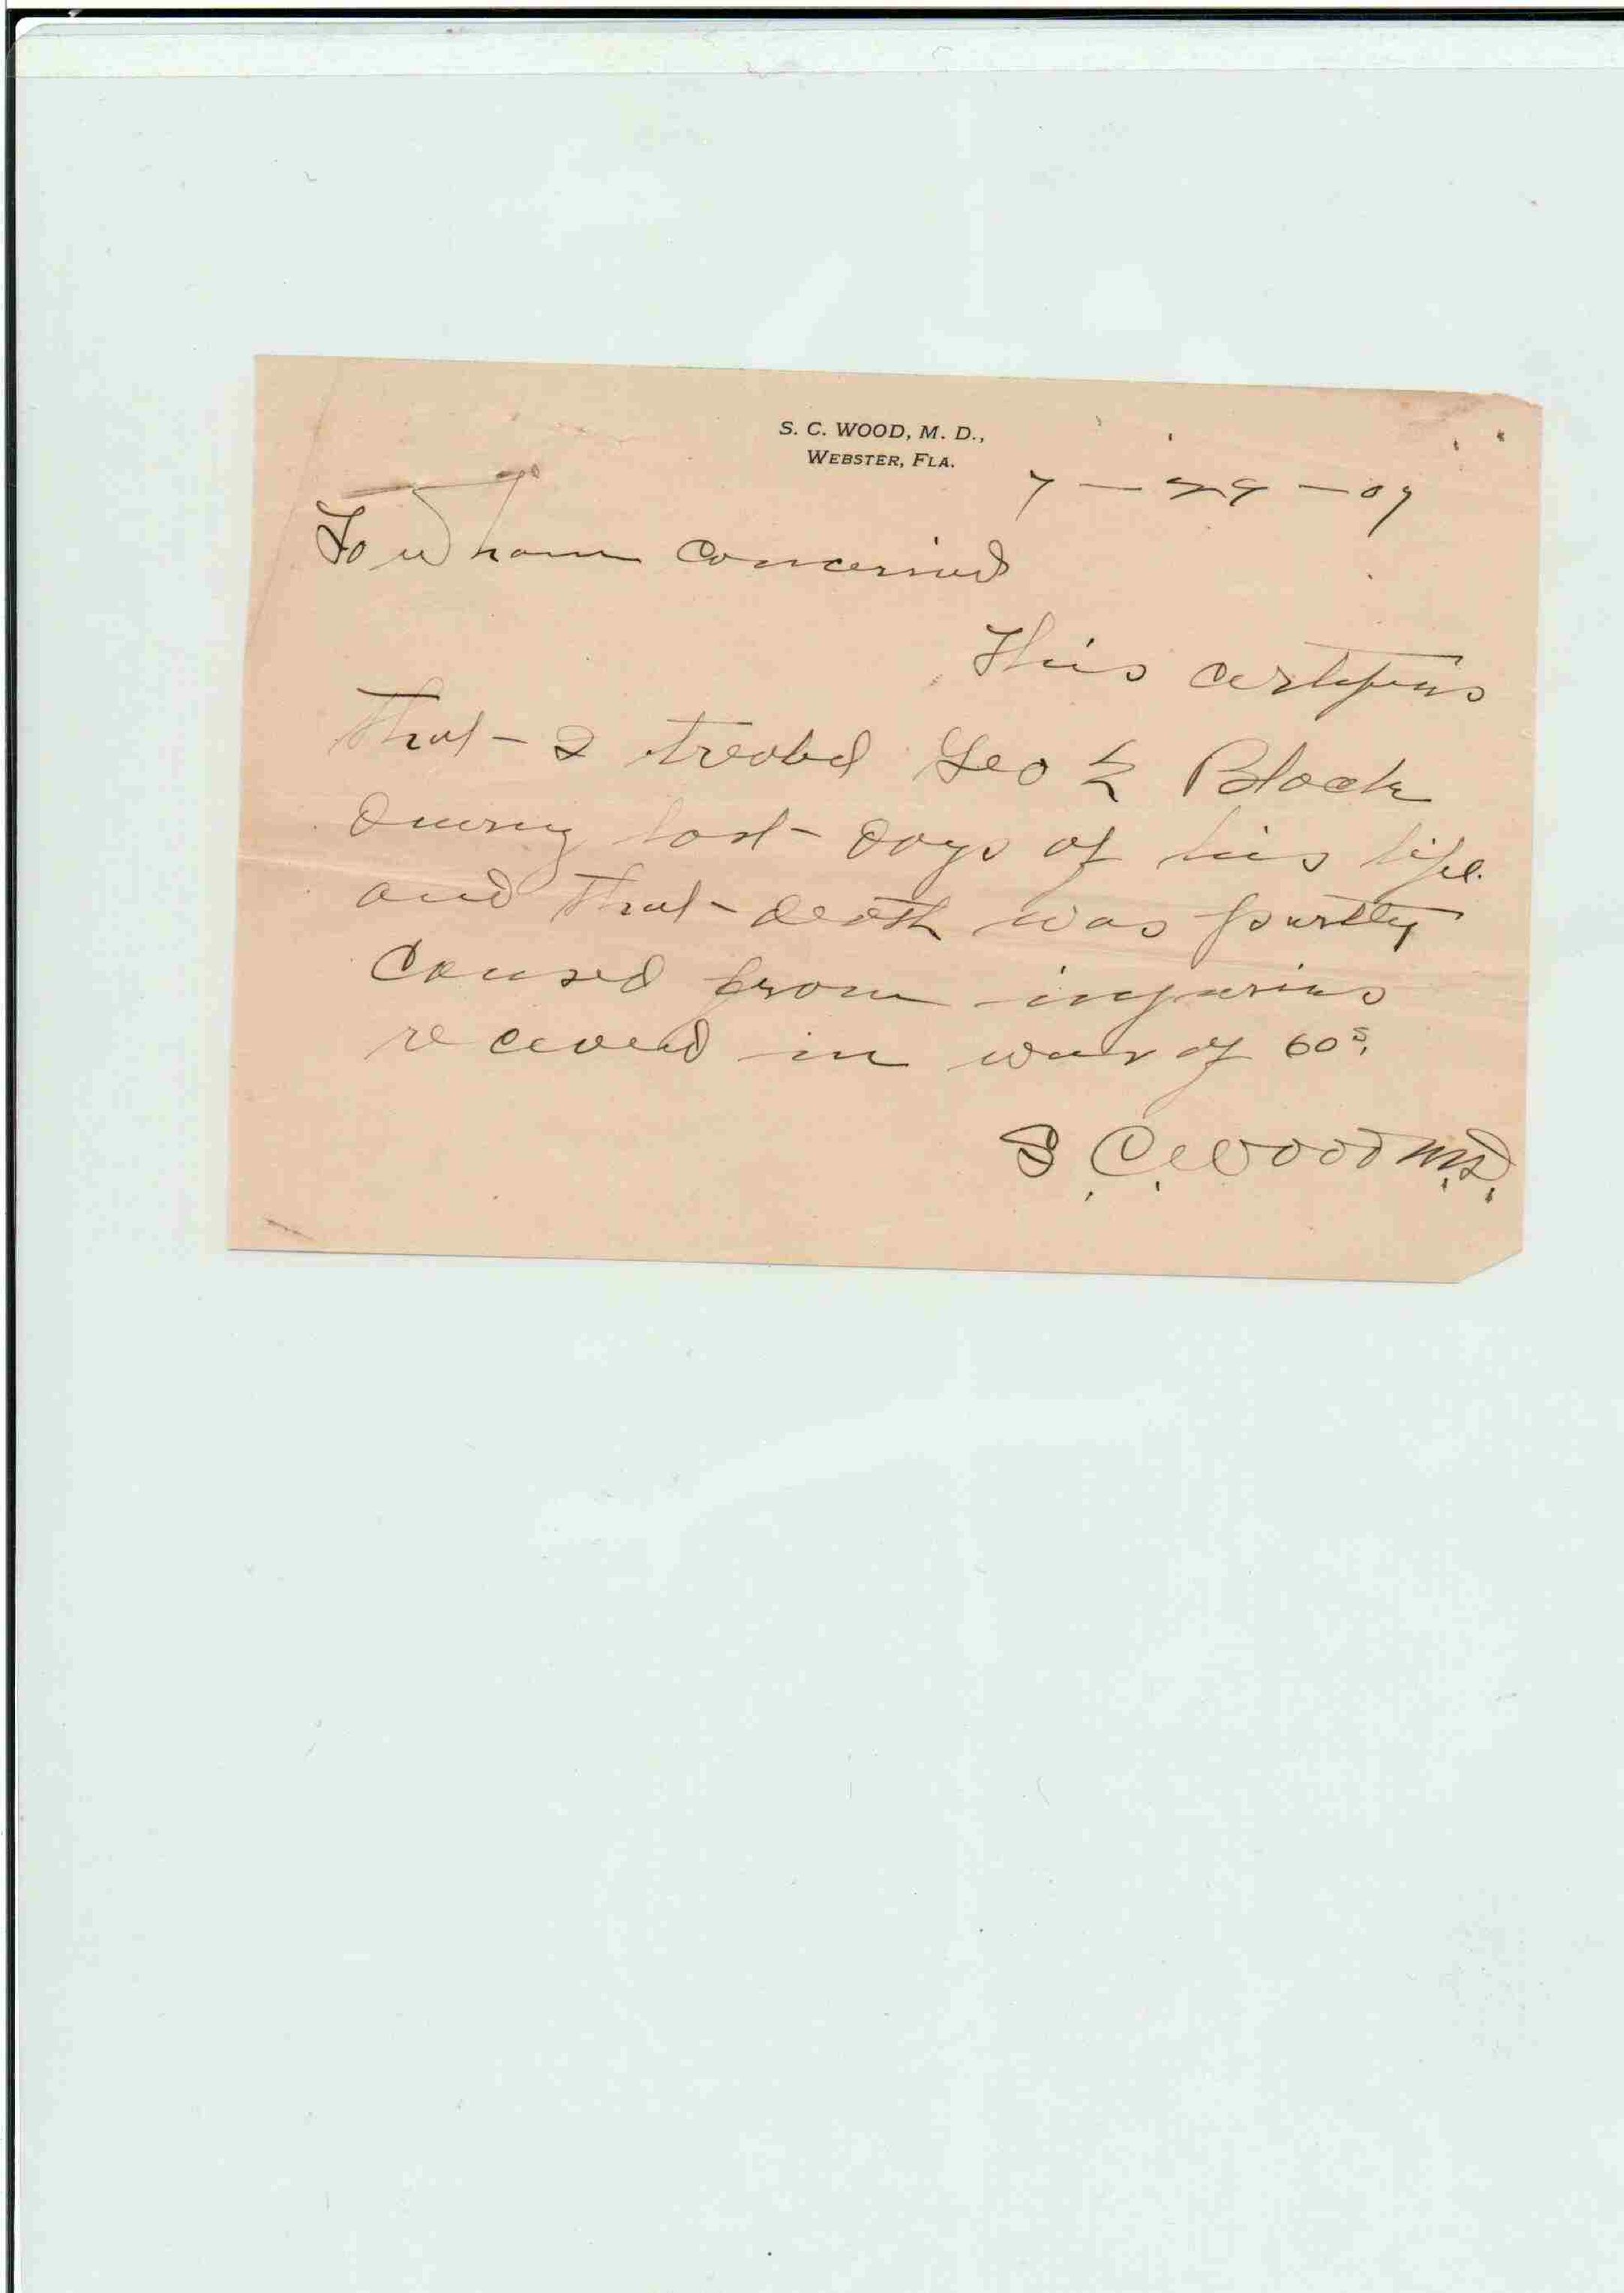 S. C. WOOD, M. D.,
WEBSTER, FLA.
To Whom Concerned
This certifies
that I treated Geo Black
during last days of his life
and that death was partly
caused from injuries
received in war of 60s.
S. C. Wood M.D.